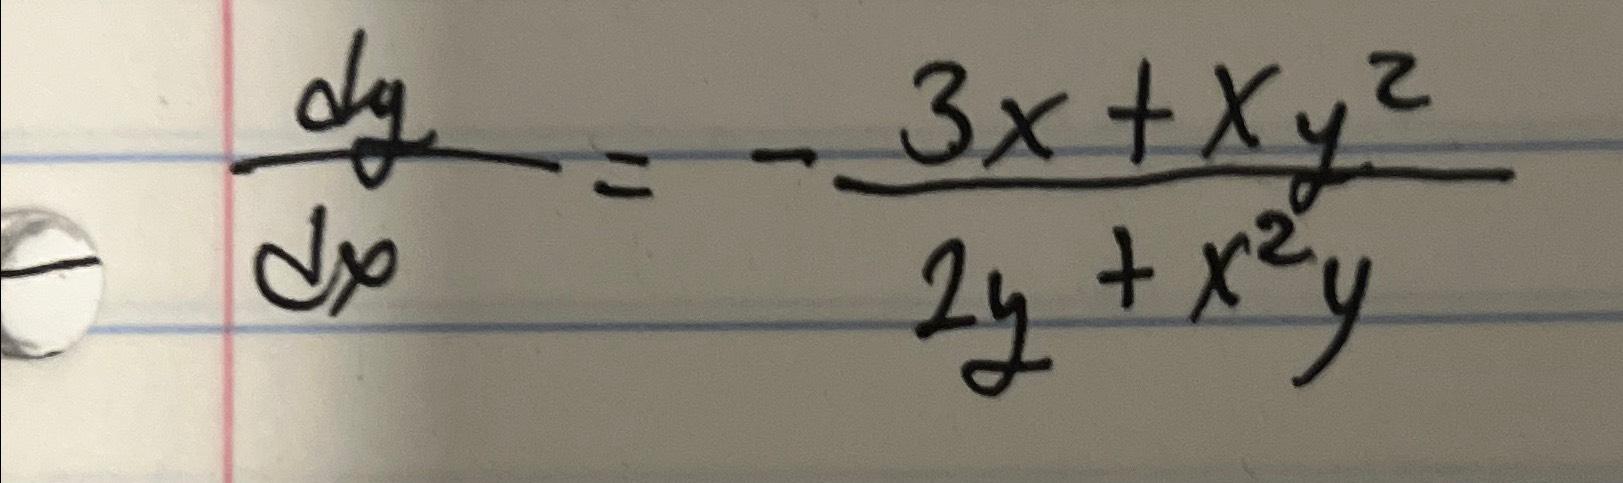 dy/dx = - (3x + xy²)/(2y + x²y)